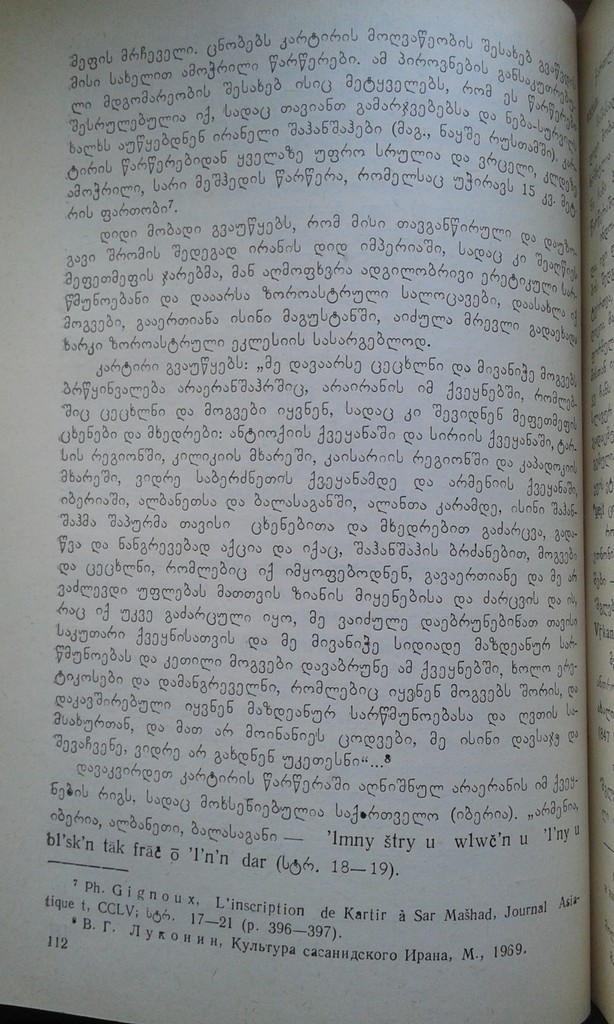 მეფის მრჩეველი. ცნობებს კარტირის მოღვაწეობის შესახებ გვაწვდის
მისი სახელით ამოჭრილი წარწერები. ამ პიროვნების განსაკუთრებუ-
ლი მდგომარეობის შესახებ ისიც მეტყველებს, რომ ეს წარწერები
შესრულებულია იქ, სადაც თავიანთ გამარჯვებებსა და ნება-სურვილს
ხალხს აუწყებდნენ ირანელი შაჰანშაჰები (მაგ., ნაყშე რუსთამში). კარ-
ტირის წარწერებიდან ყველაზე უფრო სრულია და ვრცელი, კლდეზე
ამოჭრილი, სარი მეშჰედის წარწერა, რომელსაც უჭირავს 15 კვ. მეტ-
რის ფართობი⁷.
დიდი მობადი გვაუწყებს, რომ მისი თავგანწირული და დაუზო-
გავი შრომის შედეგად ირანის დიდ იმპერიაში, სადაც კი შეაღწიეს
მეფეთმეფის ჯარებმა, მან აღმოფხვრა ადგილობრივი ერეტიკული სარ-
წმუნოებანი და დააარსა ზოროასტრული სალოცავები, დაასახლა იქ
მოგვები, გააერთიანა ისინი მაგუსტანში, აიძულა მრევლი გადაეხადა
ხარკი ზოროასტრული ეკლესიის სასარგებლოდ.
კარტირი გვაუწყებს: „მე დავაარსე ცეცხლნი და მივანიჭე მოგვებს
ბრწყინვალება არაერანშაჰრშიც, არაირანის იმ ქვეყნებში, რომლებ-
შიც ცეცხლნი და მოგვები იყვნენ, სადაც კი შევიდნენ მეფეთმეფის
ცხენები და მხედრები: ანტიოქიის ქვეყანაში და სირიის ქვეყანაში, ტარ-
სის რეგიონში, კილიკიის მხარეში, კაისარიის რეგიონში და კაპადოკიის
მხარეში, ვიდრე საბერძნეთის ქვეყანამდე და არმენიის ქვეყანაში,
იბერიაში, ალბანეთსა და ბალასაგანში, ალანთა კარამდე, ისინი შაჰან-
შაჰმა შაპურმა თავისი ცხენებითა და მხედრებით გაძარცვა, გადა-
წვა და ნანგრევებად აქცია და იქაც, შაჰანშაჰის ბრძანებით, მოგვები
და ცეცხლნი, რომლებიც იქ იმყოფებოდნენ, გავაერთიანე და მე არ
ვაძლევდი უფლებას მათთვის ზიანის მიყენებისა და ძარცვის და ის,
რაც იქ უკვე გაძარცული იყო, მე ვაიძულე დაებრუნებინათ თავისი
საკუთარი ქვეყნისათვის და მე მივანიჭე სიდიადე მაზდეანურ სარ-
წმუნოებას და კეთილი მოგვები დავაბრუნე ამ ქვეყნებში, ხოლო ერე-
ტიკოსები და დამანგრეველნი, რომლებიც იყვნენ მოგვებს შორის, და
დაკავშირებული იყვნენ მაზდეანურ სარწმუნოებასა და ღვთის სა-
მსახურთან, და მათ არ მოინანიეს ცოდვები, მე ისინი დავსაჯე და
შევაჩვენე, ვიდრე არ გახდნენ უკეთესნი“...⁸
დავაკვირდეთ კარტირის წარწერაში აღნიშნულ არაერანის იმ ქვეყ-
ნების რიგს, სადაც მოხსენიებულია საქართველო (იბერია). „არმენია,
იბერია, ალბანეთი, ბალასაგანი — 'lmny štry u wlwč'n u 'l'ny u
bl'sk'n tāk frāč ō 'l'n'n dar (სტრ. 18—19).
⁷ Ph. Gignoux, L'inscription de Kartir à Sar Mašhad, Journal Asia-
tique t, CCLV; სტრ. 17—21 (p. 396—397).
⁸ В. Г. Луконин, Культура сасанидского Ирана, М., 1969.
112